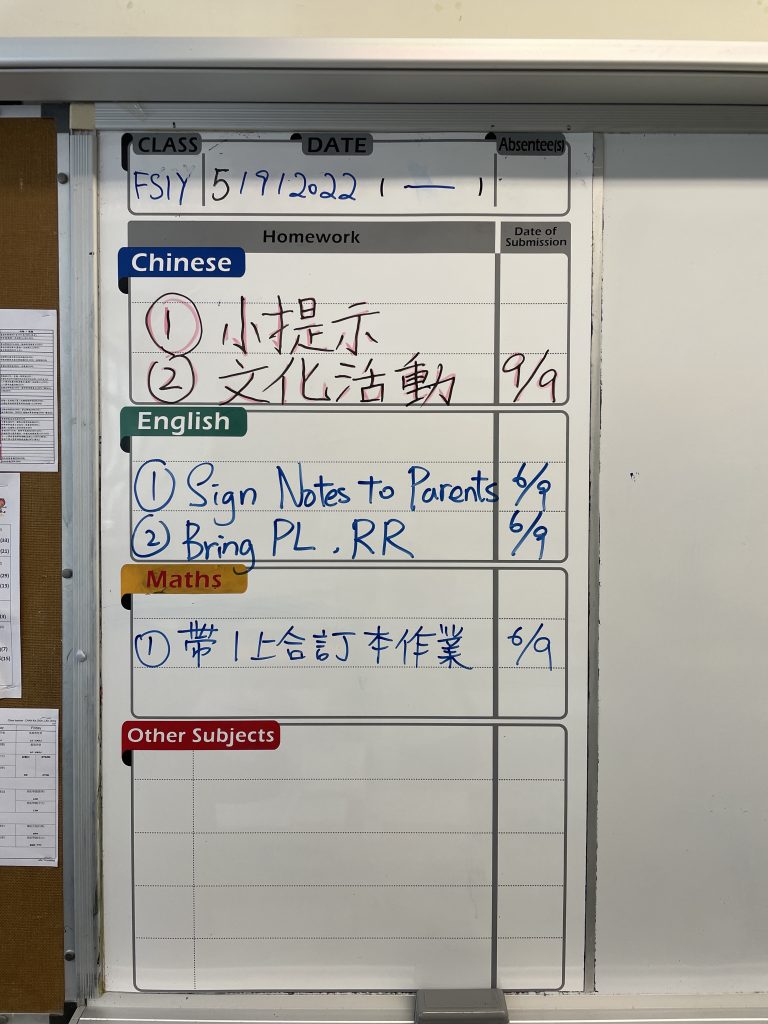 CLASS DATE Absentee(s)
FS1Y 5/9/2022 ( — )
Homework Date of Submission
Chinese
① 小提示
② 文化活動 9/9
English
① Sign Notes to Parents 6/9
② Bring PL, RR 6/9
Maths
① 帶1上合訂本作業 6/9
Other Subjects